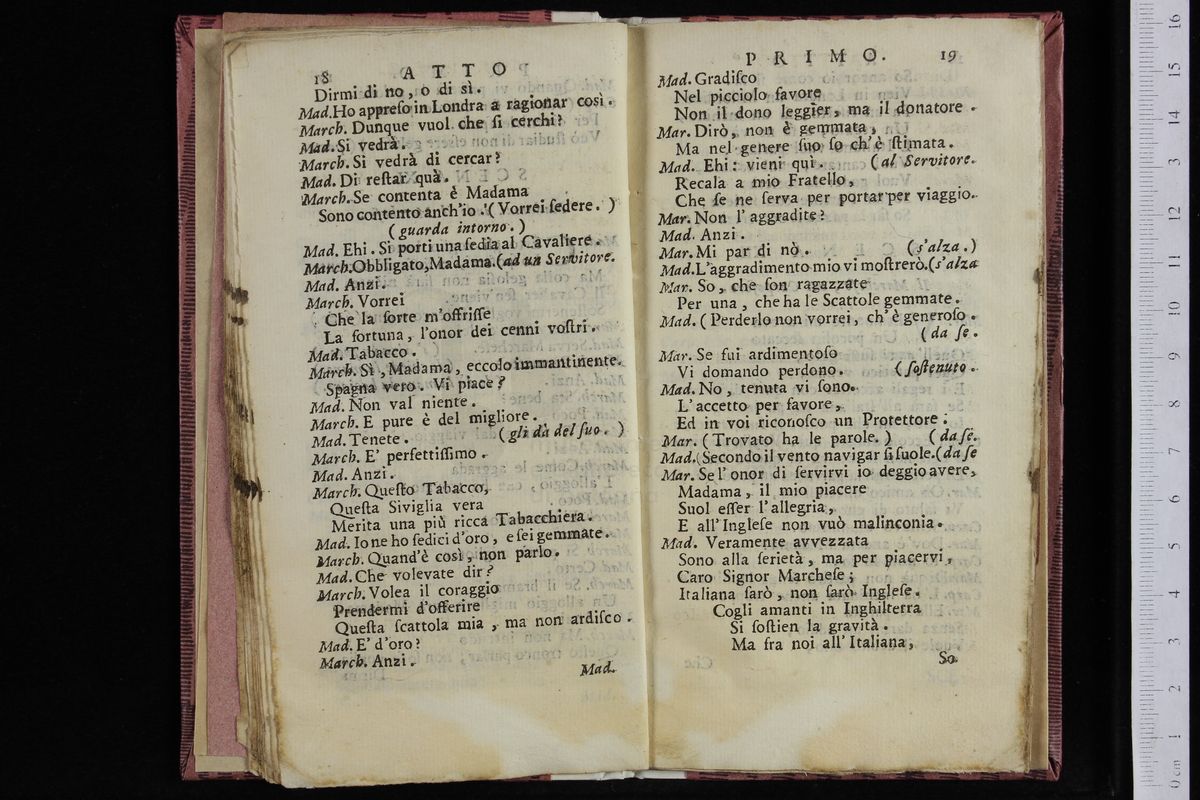 18 ATTO
Dirmi di no, o di sì.
Mad. Ho appreſo in Londra a ragionar così.
March. Dunque vuol che ſi cerchi?
Mad. Si vedrà.
March. Si vedrà di cercar?
Mad. Di reſtar quà.
March. Se contenta è Madama
Sono contento anch'io. (Vorrei ſedere.)
(guarda intorno.)
Mad. Ehi. Si porti una ſedia al Cavaliere.
March. Obbligato, Madama. (ad un Servitore.
Mad. Anzi.
March. Vorrei
Che la ſorte m'offriſſe
La fortuna, l'onor dei cenni voſtri.
Mad. Tabacco.
March. Sì, Madama, eccolo immantinente.
Spagna vero. Vi piace?
Mad. Non val niente.
March. E pure è del migliore.
Mad. Tenete. (gli dà del ſuo.)
March. E' perfettiſſimo.
Mad. Anzi.
March. Queſto Tabacco,
Queſta Siviglia vera
Merita una più ricca Tabacchiera.
Mad. Io ne ho ſedici d'oro, e ſei gemmate.
March. Quand'è così, non parlo.
Mad. Che volevate dir?
March. Volea il coraggio
Prendermi d'offerire
Queſta ſcattola mia, ma non ardiſco.
Mad. E' d'oro?
March. Anzi.
Mad.
PRIMO. 19
Mad. Gradiſco
Nel picciolo favore
Non il dono leggier, ma il donatore.
Mar. Dirò, non è gemmata,
Ma nel genere ſuo ſo ch'è ſtimata.
Mad. Ehi: vieni quì. (al Servitore.
Recala a mio Fratello,
Che ſe ne ſerva per portar per viaggio.
Mar. Non l'aggradite?
Mad. Anzi.
Mar. Mi par di nò. (s'alza.)
Mad. L'aggradimento mio vi moſtrerò. (s'alza
Mar. So, che ſon ragazzate
Per una, che ha le Scattole gemmate.
Mad. (Perderlo non vorrei, ch'è generoſo.
(da ſe.
Mar. Se fui ardimentoſo
Vi domando perdono. (ſoſtenuto.
Mad. No, tenuta vi ſono.
L'accetto per favore,
Ed in voi riconoſco un Protettore.
Mar. (Trovato ha le parole.) (da ſe.
Mad. (Secondo il vento navigar ſi ſuole. (da ſe
Mar. Se l'onor di ſervirvi io deggio avere,
Madama, il mio piacere
Suol eſſer l'allegria,
E all'Ingleſe non vuò malinconia.
Mad. Veramente avvezzata
Sono alla ſerietà, ma per piacervi,
Caro Signor Marcheſe;
Italiana ſarò, non ſarò Ingleſe.
Cogli amanti in Inghilterra
Si ſoſtien la gravità.
Ma fra noi all'Italiana,
So